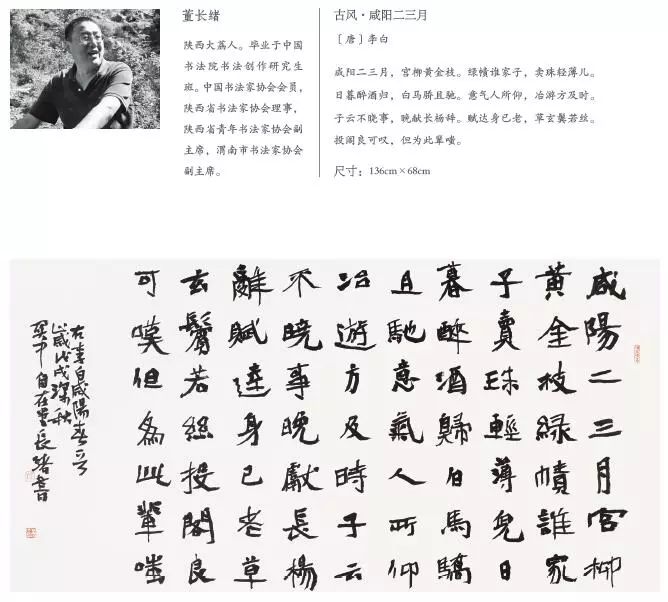 董长绪
陕西大荔人。毕业于中国
书法院书法创作研究生
班。中国书法家协会会员，
陕西省书法家协会理事，
陕西省青年书法家协会副
主席，渭南市书法家协会
副主席。
古风·咸阳二三月
［唐］李白
咸阳二三月，宫柳黄金枝。绿帻谁家子，卖珠轻薄儿。
日暮醉酒归，白马骄且驰。意气人所仰，冶游方及时。
子云不晓事，晚献长杨辞。赋达身已老，草玄鬓若丝。
投阁良可叹，但为此辈嗤。
尺寸：136cm×68cm
咸陽二三月宫柳
黃金枝綠幘誰家
子賣珠輕薄兒日
暮醉酒歸白馬驕
且馳意氣人所仰
冶遊方及時子云
不曉事晚獻長楊
辭賦達身已老草
玄鬢若絲投閣良
可嘆但為此輩嗤
右李白咸陽
歲戊戌深秋
自在堂長緒書